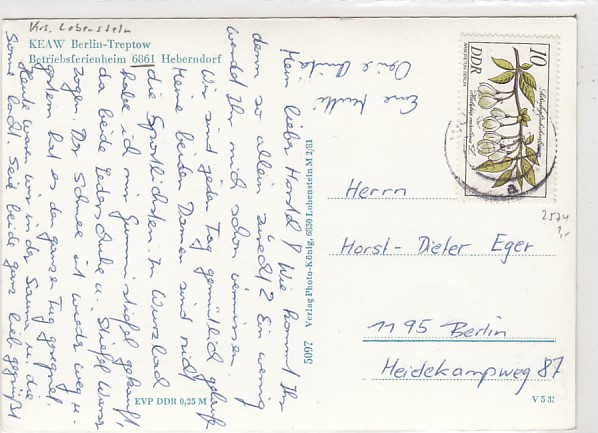 Krs. Lobenstein
KEAW Berlin-Treptow
Betriebsferienheim 6861 Heberndorf
Mein lieber Horstel! Wie kommt Ihr
denn so allein zurecht? Ein wenig
werdet Ihr mich schon vermissen.
Wir sind jeden Tag gemütlich gelaufen
Meine beiden Damen sind nicht
die Sportlichsten. In Wurzbach
habe ich mir Gummistiefel gekauft,
da beide Lederschuhe u. Stiefel Wasser
zogen. Der Schnee ist wieder weg u.
gestern hat es den ganzen Tag geregnet.
Heute waren wir in der Sauna, u. die
Sonne lacht. Seid beide ganz lieb gegrüßt
Eure Mutti
5097 Verlag Photo-König, 6850 Lobenstein M 2/81
EVP DDR 0,25 M
10
DDR
2574
1,-
Herrn
Horst-Dieter Eger
1195 Berlin
Heidekampweg 87